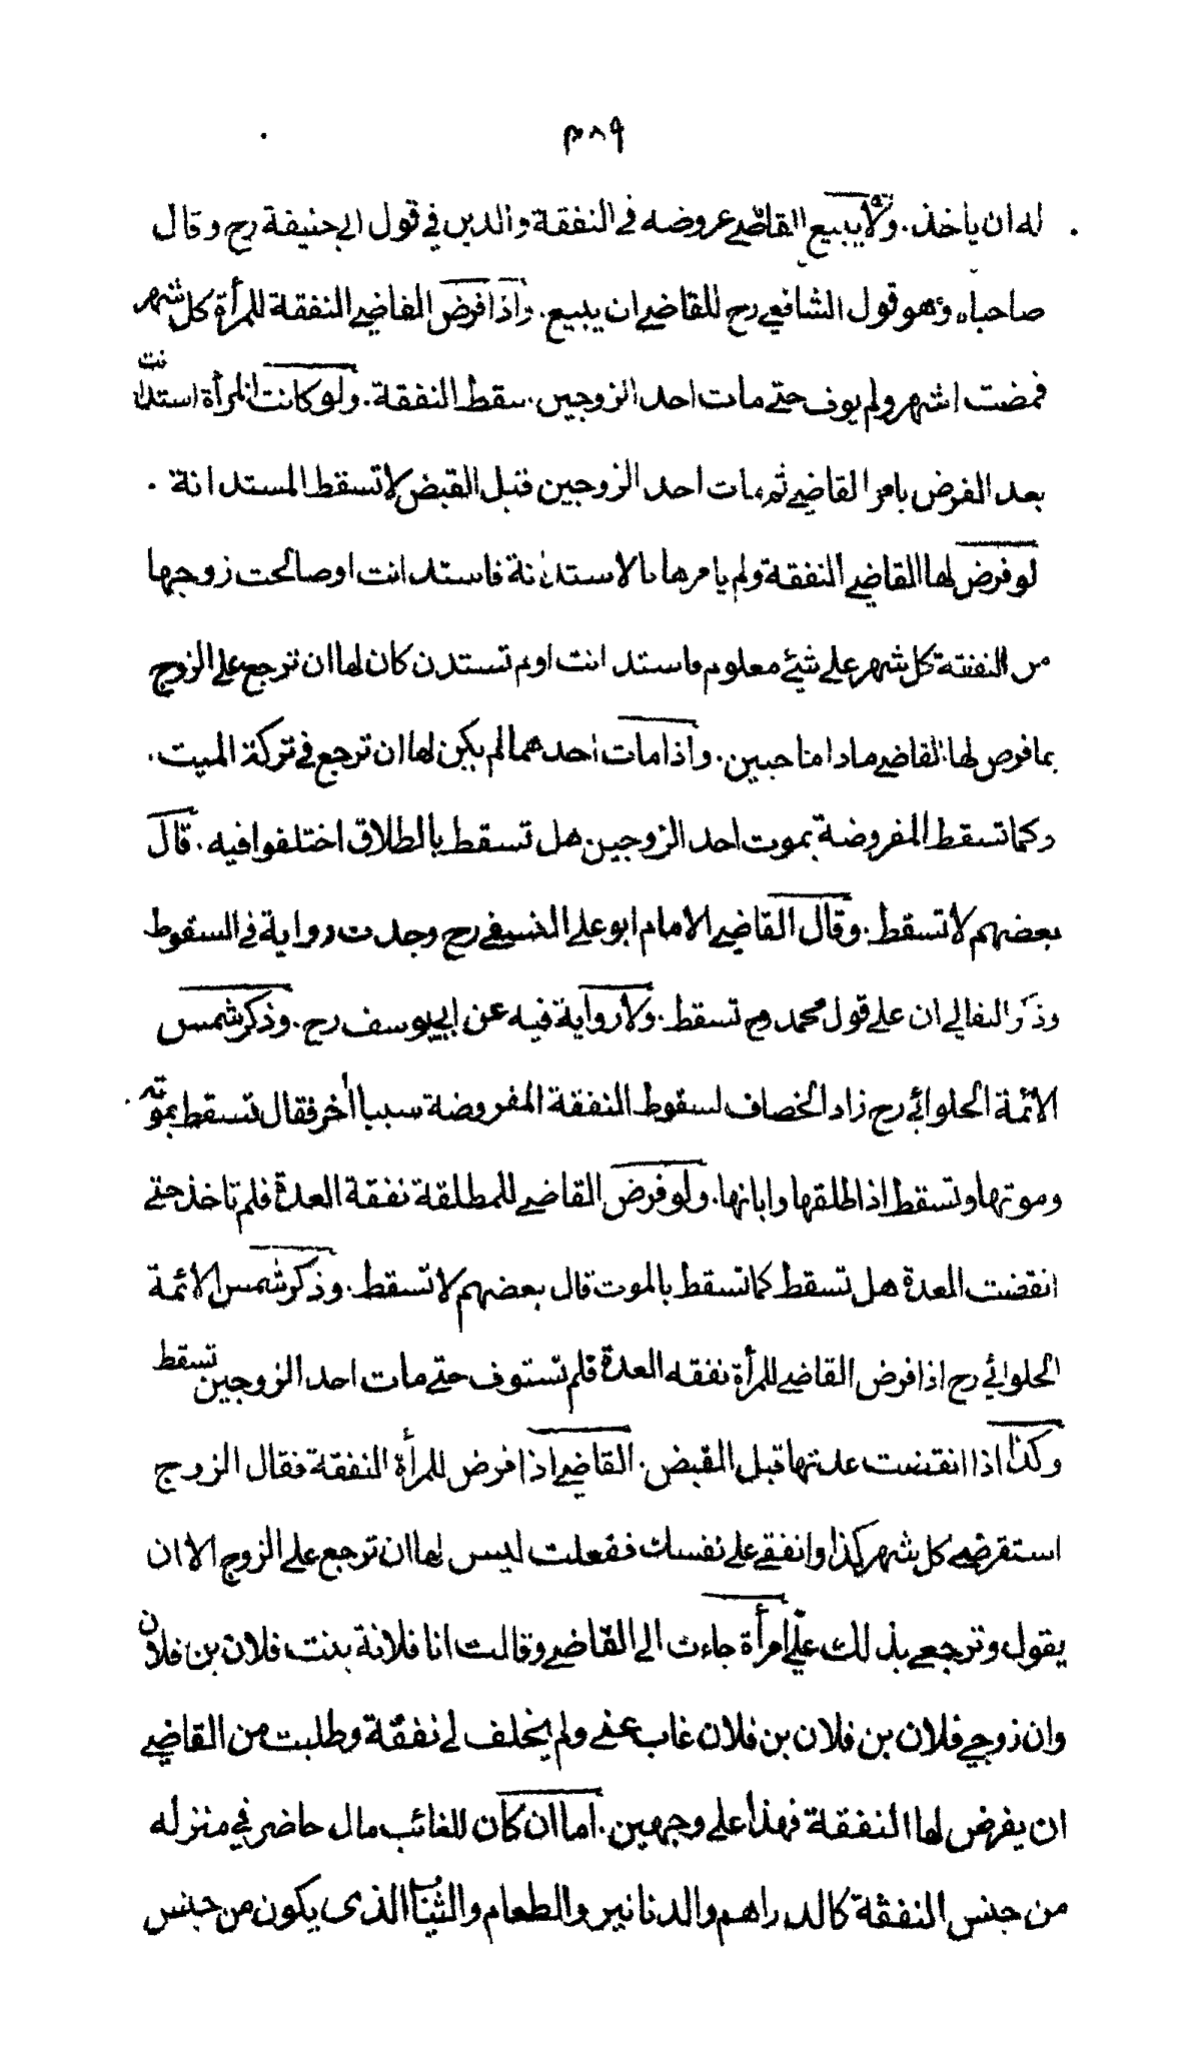 ٣٨٩
له ان ياخذ. ولا يبيع القاضي عروضه في النفقة والدين في قول ابي حنيفة رح وقال
صاحباه وهو قول الشافعي رح للقاضي ان يبيع. واذا فرض القاضي النفقة للمرأة كل شهر
فمضت اشهر ولم يوف حتى مات احد الزوجين. سقط النفقة. ولو كانت المرأة استدانت
بعد الفرض بامر القاضي ثم مات احد الزوجين قبل القبض لا تسقط المستدانة.
لو فرض لها القاضي النفقة ولم يامرها بالاستدانة فاستدانت او صالحت زوجها
من النفقة كل شهر على شيء معلوم فاستدانت او لم تستدن كان لها ان ترجع على الزوج
بما فرض لها القاضي ماداما حيين. واذا مات احدهما لم يكن لها ان ترجع في تركة الميت.
وكما تسقط المفروضة بموت احد الزوجين هل تسقط بالطلاق اختلفوا فيه. قال
بعضهم لا تسقط. وقال القاضي الامام ابو علي النسفي رح وجدت رواية في السقوط
وذكر البقالي ان على قول محمد رح تسقط. ولا رواية فيه عن ابي يوسف رح. وذكر شمس
الائمة الحلوائي رح زاد الخصاف لسقوط النفقة المفروضة سببا اخر فقال تسقط بموته
وموتها وتسقط اذا طلقها وابانها. ولو فرض القاضي للمطلقة نفقة العدة فلم تاخذ حتى
انقضت العدة هل تسقط كما تسقط بالموت قال بعضهم لا تسقط. وذكر شمس الائمة
الحلوائي رح اذا فرض القاضي للمرأة نفقه العدة فلم تستوف حتى مات احد الزوجين تسقط
وكذا اذا انقضت عدتها قبل القبض. القاضي اذا فرض للمرأة النفقة فقال الزوج
استقرضي كل شهر كذا وانفقي على نفسك ففعلت ليس لها ان ترجع على الزوج الا ان
يقول وترجعي بذلك علي امرأة جاءت الى القاضي وقالت انا فلانة بنت فلان بن فلان
وان زوجي فلان بن فلان بن فلان غاب عني ولم يخلف لي نفقة وطلبت من القاضي
ان يفرض لها النفقة فهذا على وجهين. اما ان كان للغائب مال حاضر في منزله
من جنس النفقة كالدراهم والدنانير والطعام والثياب الذى يكون من جنس